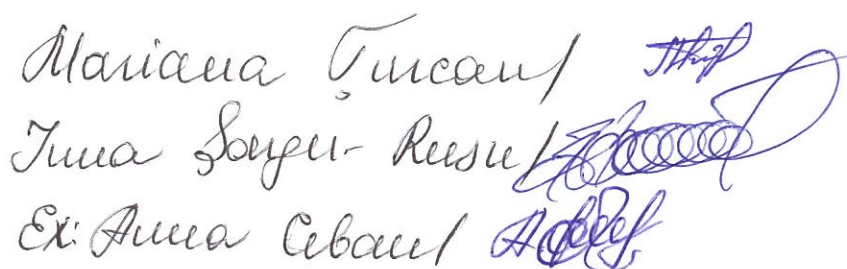 Mariana Țurcan/
Inna Rusu/
Ex: Anna Ciban/